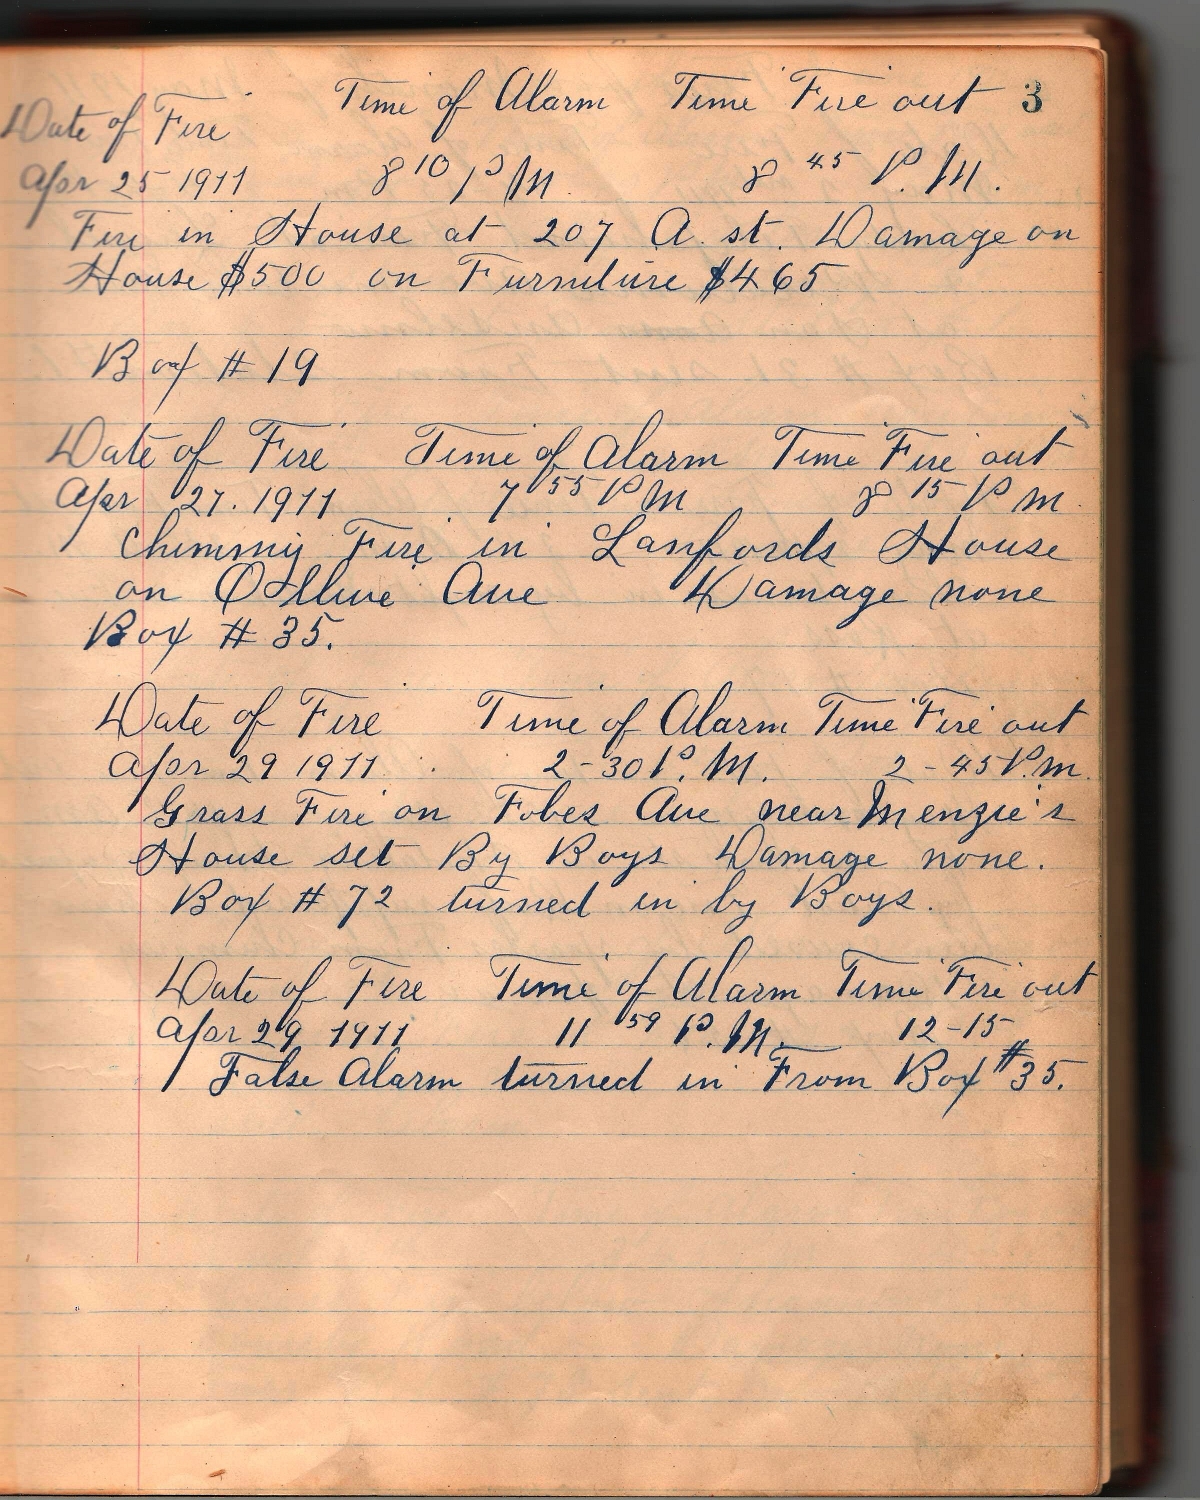 Time of Alarm Time Fire out 3
Date of Fire
Apr 25 1911 8 10 P M. 8 45 P. M.
Fire in House at 207 A. st. Damage on
House $500 on Furniture $465
Box # 19
Date of Fire Time of Alarm Time Fire out
Apr 27. 1911 7 55 P M 8 15 P m.
Chimniy Fire in Lanfords House
on Ave Damage none
Box # 35.
Date of Fire Time of Alarm Time Fire out
Apr 29 1911 2-30 P. M. 2-45 P.m.
Grass Fire on Fobes Ave near Menzie's
House set By Boys Damage none.
Box # 72 turned in by Boys.
Date of Fire Time of Alarm Time Fire out
Apr 29, 1911 11 59 P. M. 12-15
False Alarm turned in From Box #35.